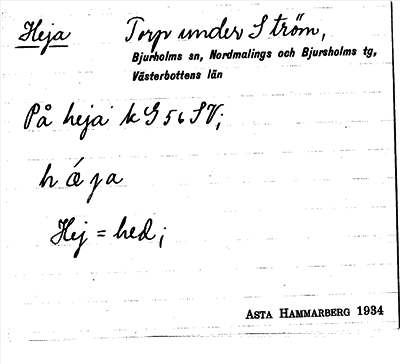 Heja Torp under Ström,
Bjurholms sn, Nordmalings och Bjursholms tg,
Västerbottens län
På heja k G 56 SV;
h æ j a
Hej = hed;
ASTA HAMMARBERG 1934